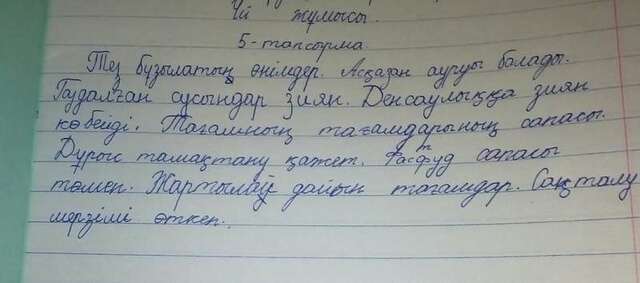 Үй жұмысы.
5-тапсырма
Тез бұзылатын өнімдер. Асқазан ауруы болады.
Газдалған сусындар зиян. Денсаулыққа зиян
көбейді. Тағамның тағамдарының сапасы.
Дұрыс тамақтану қажет. Фастфуд сапасы
төмен. Жартылай дайын тағамдар. Сақталу
мерзімі өткен.